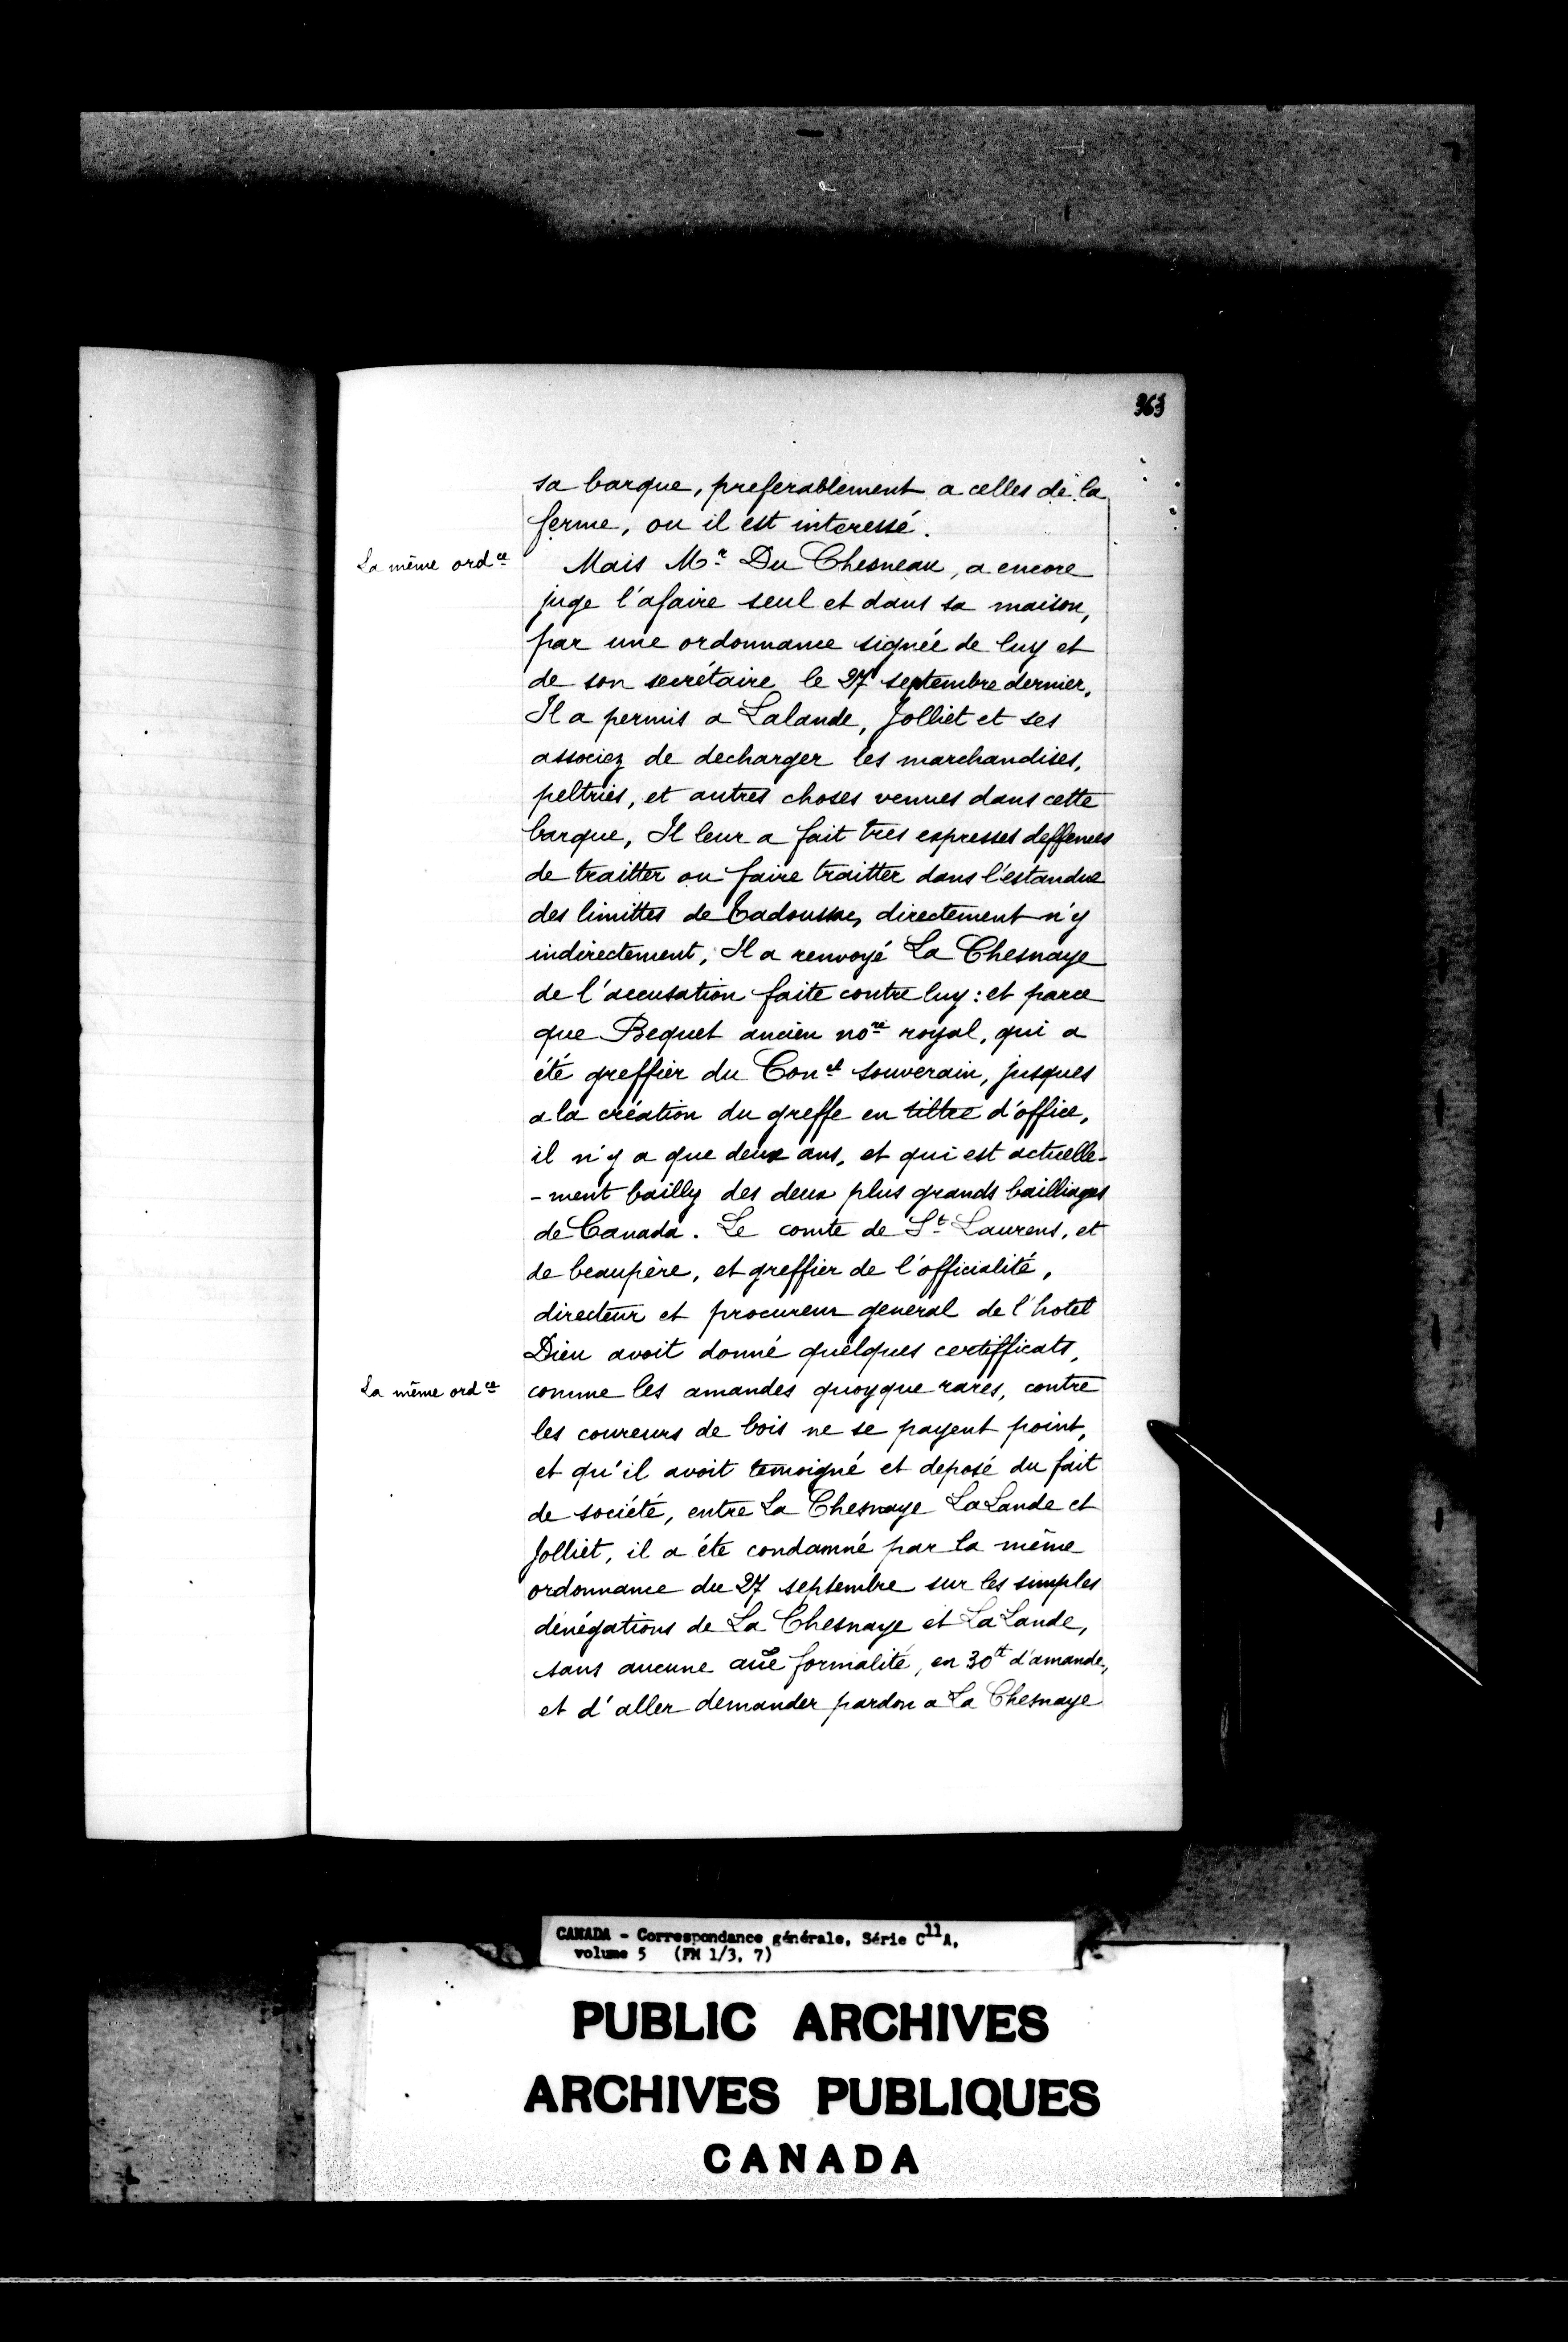 363
sa barque, preferablement a celles de la
ferme, ou il est interessé.
La même ord.ce
Mais M.r Du Chesneau, a encore
juge l'afaire seul et dans sa maison,
par une ordonnance signée de luy et
de son secrétaire le 27 septembre dernier.
Il a permis a Lalande, Jolliet et ses
associez de decharger les marchandises,
peltries, et autres choses venues dans cette
barque, Il leur a fait tres expresses deffences
de traitter ou faire traitter dans l'estandue
des limittes de Tadoussac, directement n'y
indirectement, Il a renvoyé La Chesnaye
de l'accusation faite contre luy: et parce
que Bequet ancien no.re royal, qui a
été greffier du Con.el souverain, jusques
a la création du greffe en tiltre d'office,
il n'y a que deux ans, et qui est actuelle-
-ment bailly des deux plus grands bailliages
de Canada. Le comte de S.t Laurens, et
de beaupère, et greffier de l'officialité,
directeur et procureur general de l'hotel
Dieu avoit donné quelques certifficats,
La même ord.ce
comme les amandes quoyque rares, contre
les coureurs de bois ne se payent point,
et qu'il avoit temoigné et deposé du fait
de société, entre La Chesnaye La Lande et
Jolliet, il a éte condamné par la même
ordonnance du 27 septembre sur les simples
dénégations de La Chesnaye et La Lande,
sans aucune aũe formalité, en 30tt d'amande,
et d'aller demander pardon a La Chesnaye
CANADA - Correspondance générale, Série C11A,
volume 5 (FM 1/3, 7)
PUBLIC ARCHIVES
ARCHIVES PUBLIQUES
CANADA